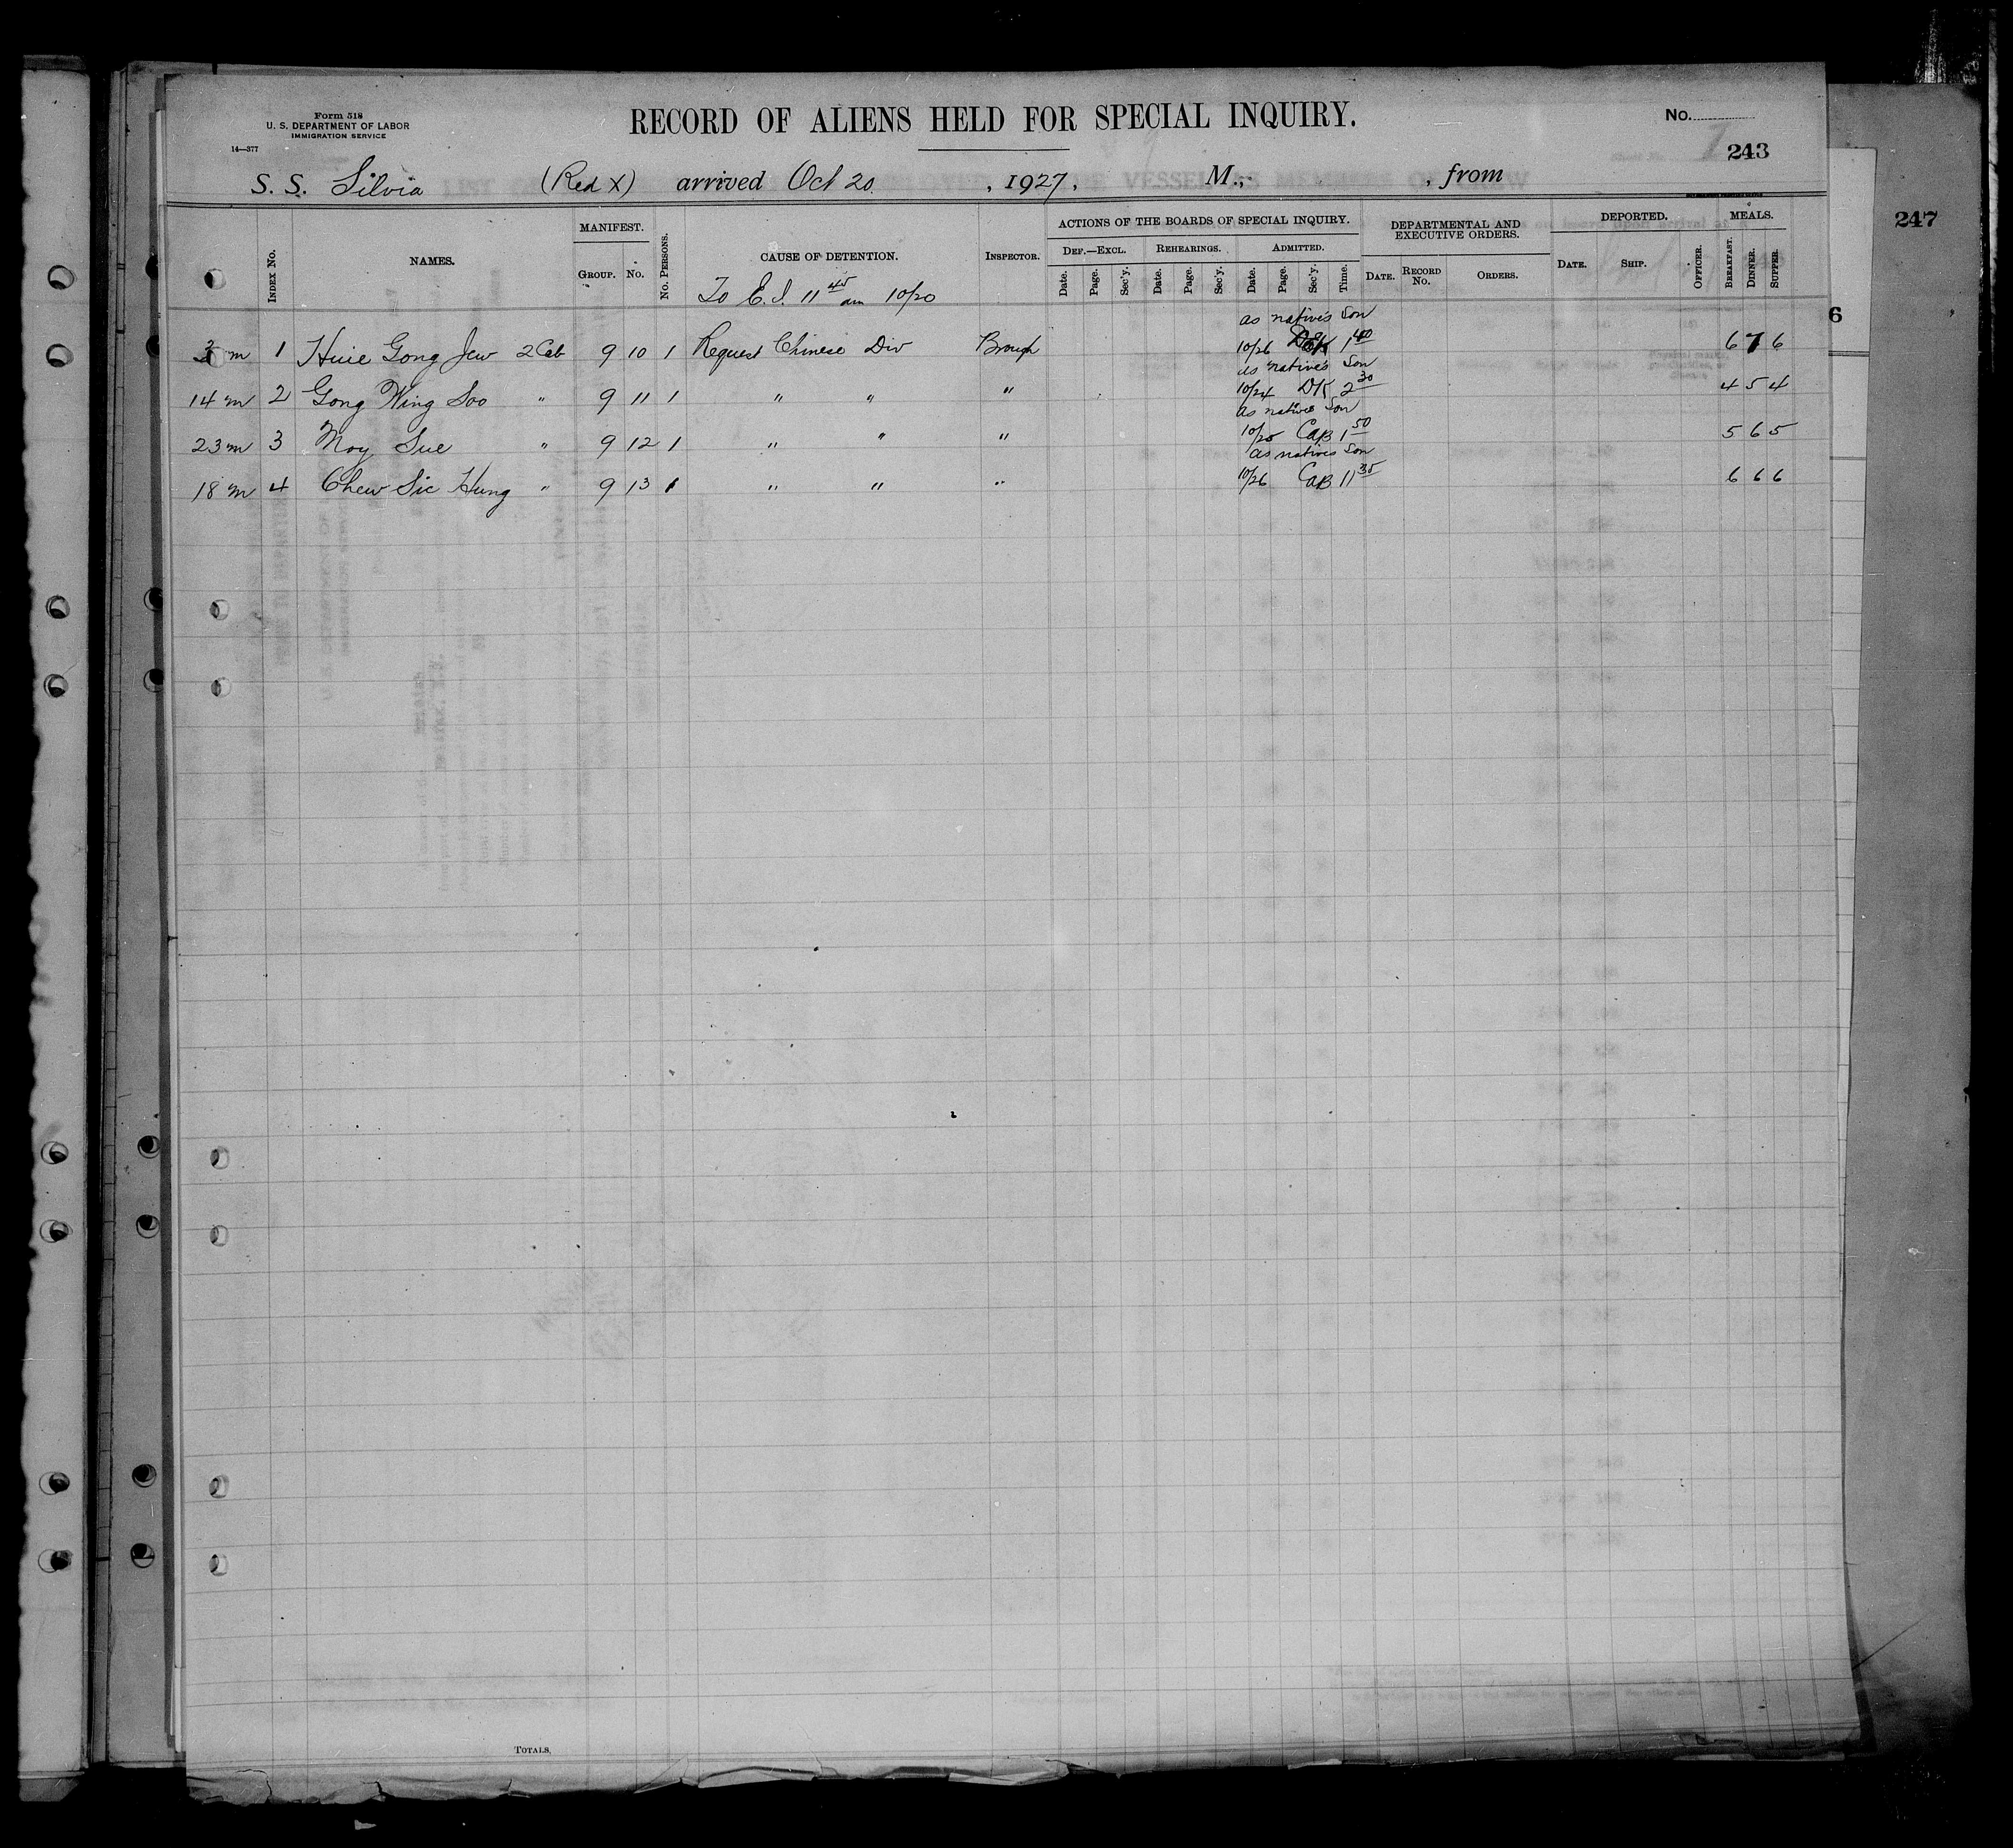 Form 518
U. S. DEPARTMENT OF LABOR
IMMIGRATION SERVICE
14—377
RECORD OF ALIENS HELD FOR SPECIAL INQUIRY.
No.
243
247
6
S. S. Silvia (Red X) arrived Oct 20, 1927, M., , from
INDEX No. NAMES. MANIFEST. GROUP. No. No. PERSONS. CAUSE OF DETENTION. INSPECTOR.
ACTIONS OF THE BOARDS OF SPECIAL INQUIRY. DEPARTMENTAL AND EXECUTIVE ORDERS. DEPORTED. MEALS.
DEF.—EXCL. REHEARINGS. ADMITTED.
Date. Page. Sec'y. Date. Page. Sec'y. Date. Page. Sec'y. Time. DATE. RECORD No. ORDERS. DATE. SHIP. OFFICER. BREAKFAST. DINNER. SUPPER.
To E. I. 11 45 am 10/20
as natives Son
m 1 Huie Gong Jew 2 Cab 9 10 1 Request Chinese Div Brough 10/26 1 40 6 7 6
as natives Son
14 m 2 Gong Wing Soo " 9 11 1 " " " 10/24 DK 2 30 4 5 4
as natives Son
23 m 3 Moy Sue " 9 12 1 " " " 10/25 CAB 1 50 5 6 5
as natives Son
18 m 4 Chew Sic Hung " 9 13 1 " " " 10/26 CAB 11 35 6 6 6
TOTALS,